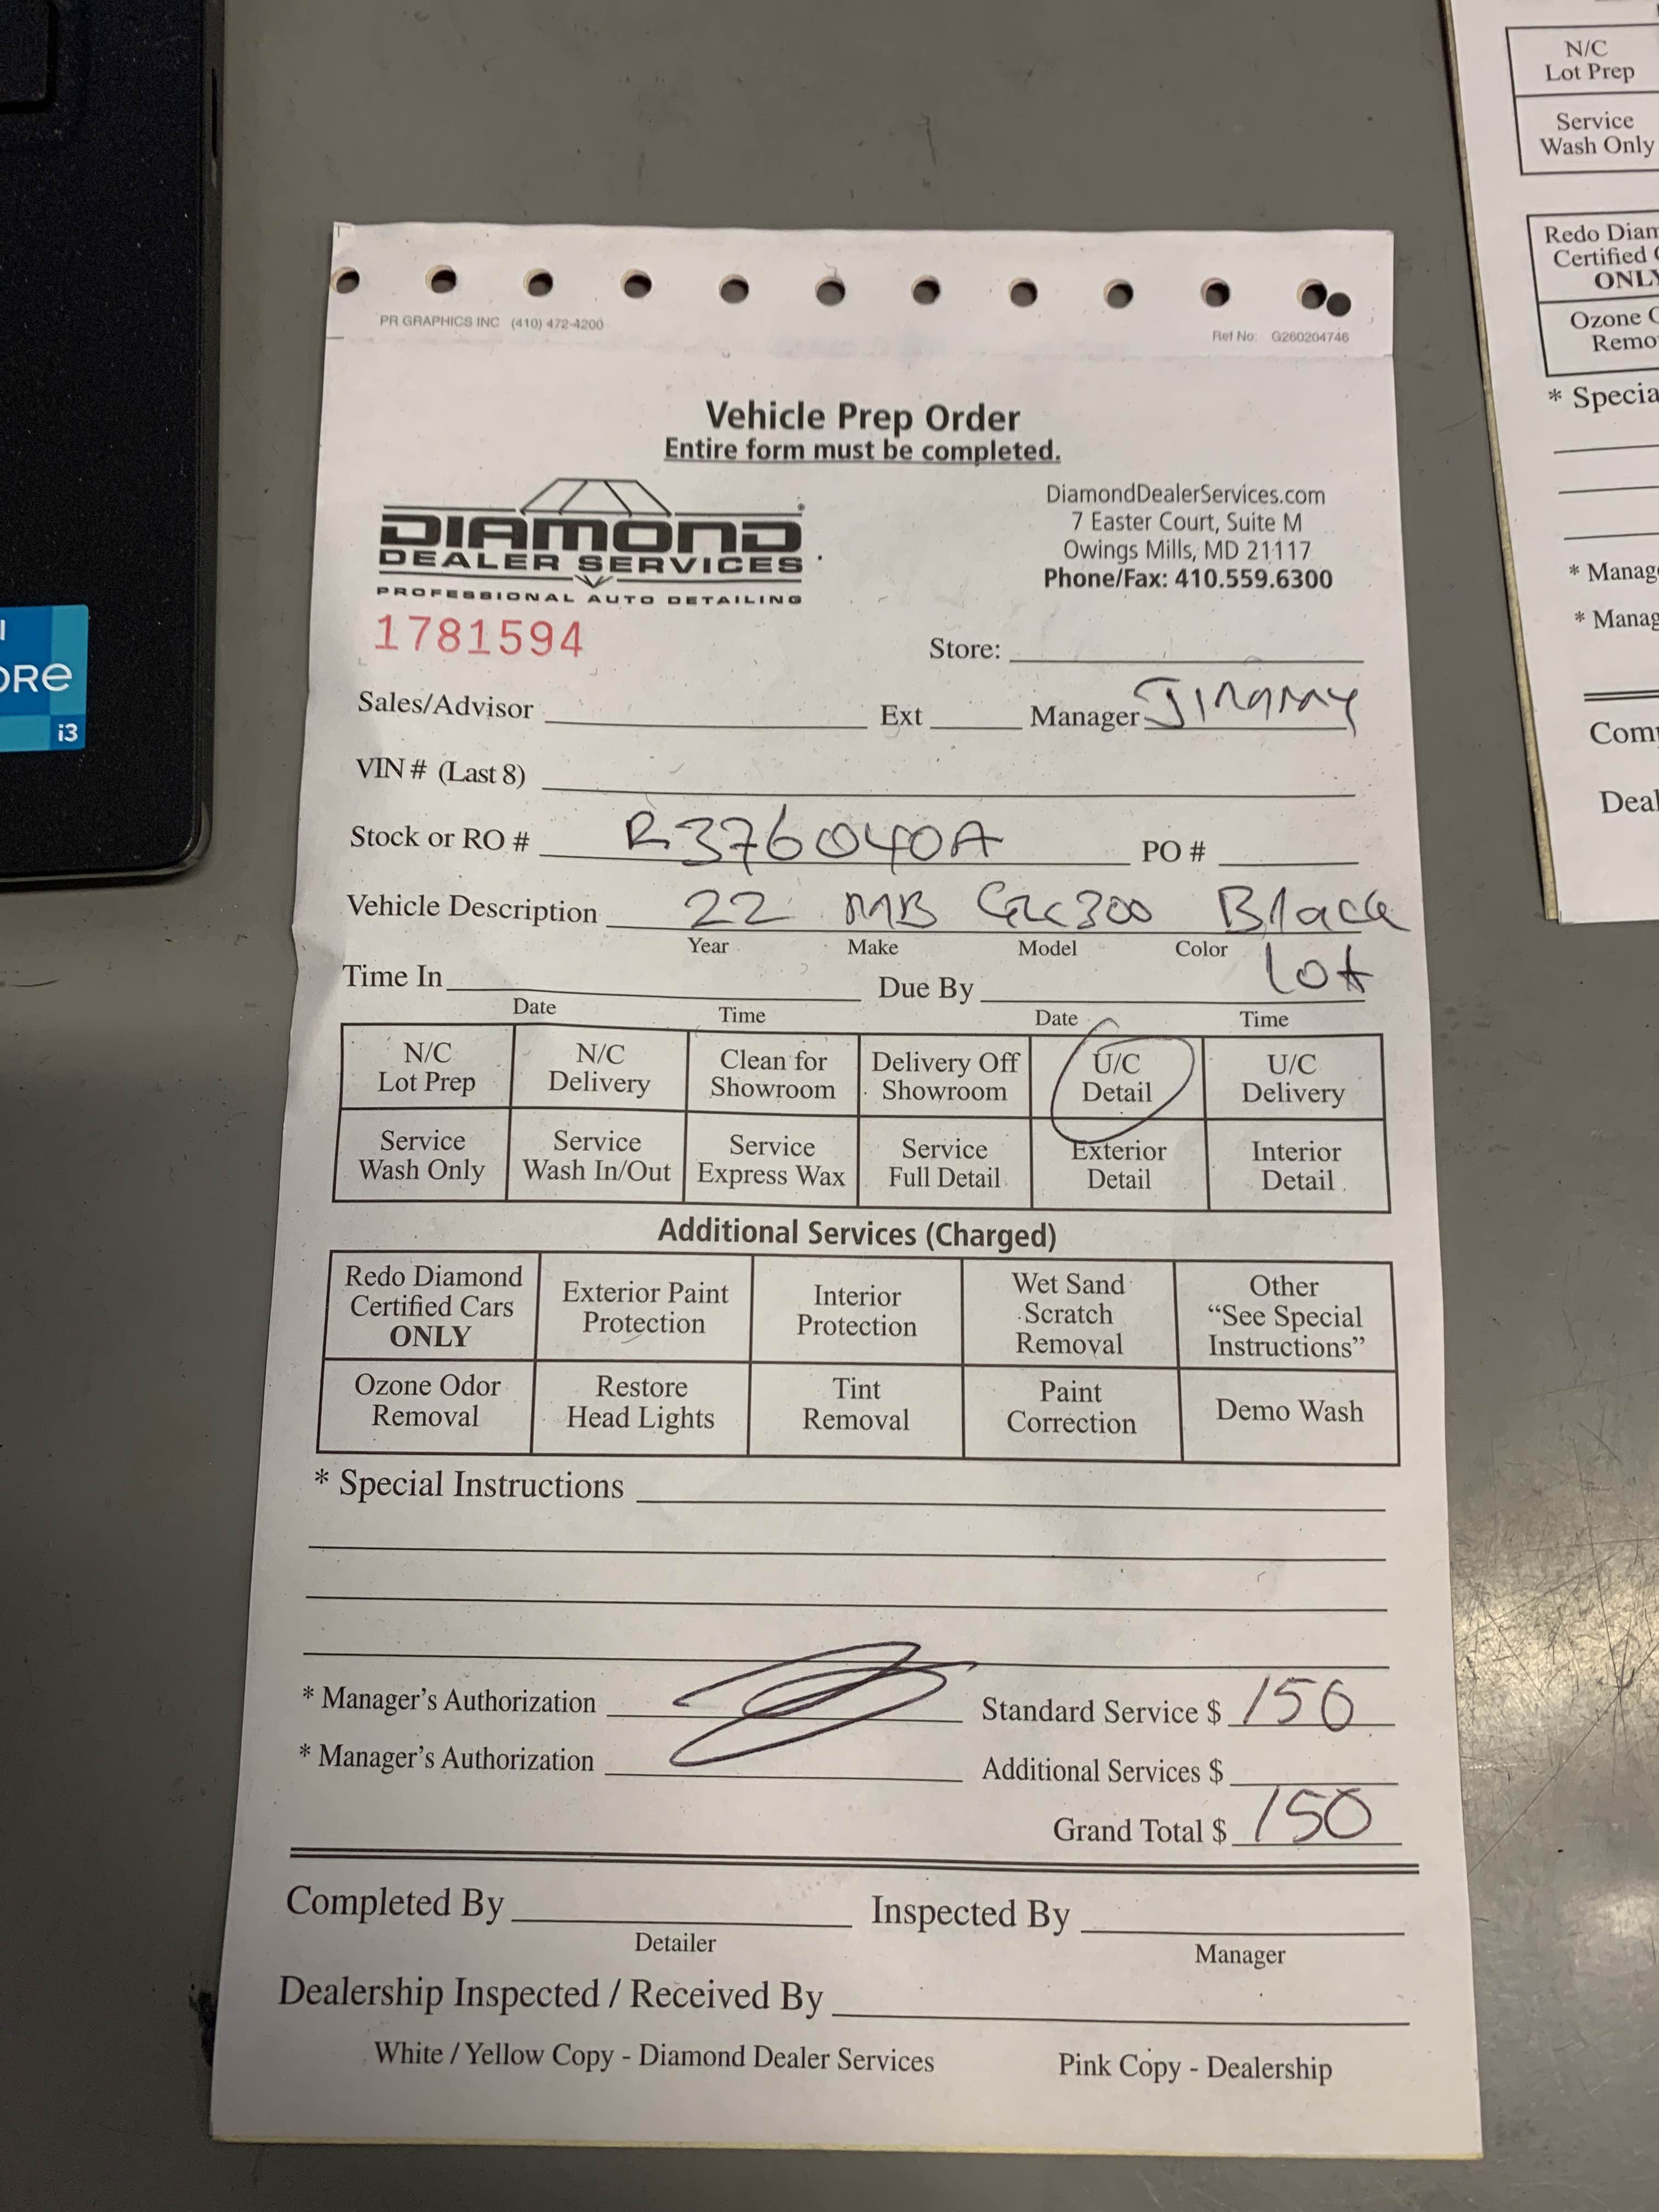 PR GRAPHICS INC (410) 472-4200
Ref No: G260204746
Vehicle Prep Order
Entire form must be completed.
DIAMOND
DEALER SERVICES
PROFESSIONAL AUTO DETAILING
DiamondDealerServices.com
7 Easter Court, Suite M
Owings Mills, MD 21117
Phone/Fax: 410.559.6300
1781594
Store:
Sales/Advisor Ext Manager Jimmy
VIN # (Last 8)
Stock or RO # R376040A PO #
Vehicle Description 22 MB GLC300 Black
Year Make Model Color
Lot
Time In Due By
Date Time Date Time
N/C Lot Prep
N/C Delivery
Clean for Showroom
Delivery Off Showroom
U/C Detail
U/C Delivery
Service Wash Only
Service Wash In/Out
Service Express Wax
Service Full Detail
Exterior Detail
Interior Detail
Additional Services (Charged)
Redo Diamond Certified Cars ONLY
Exterior Paint Protection
Interior Protection
Wet Sand Scratch Removal
Other "See Special Instructions"
Ozone Odor Removal
Restore Head Lights
Tint Removal
Paint Correction
Demo Wash
* Special Instructions
* Manager's Authorization Standard Service $ 150
* Manager's Authorization Additional Services $
Grand Total $ 150
Completed By Inspected By
Detailer Manager
Dealership Inspected / Received By
White / Yellow Copy - Diamond Dealer Services Pink Copy - Dealership
i3
N/C
Lot Prep
Service
Wash Only
Redo
Certified
ONLY
Ozone